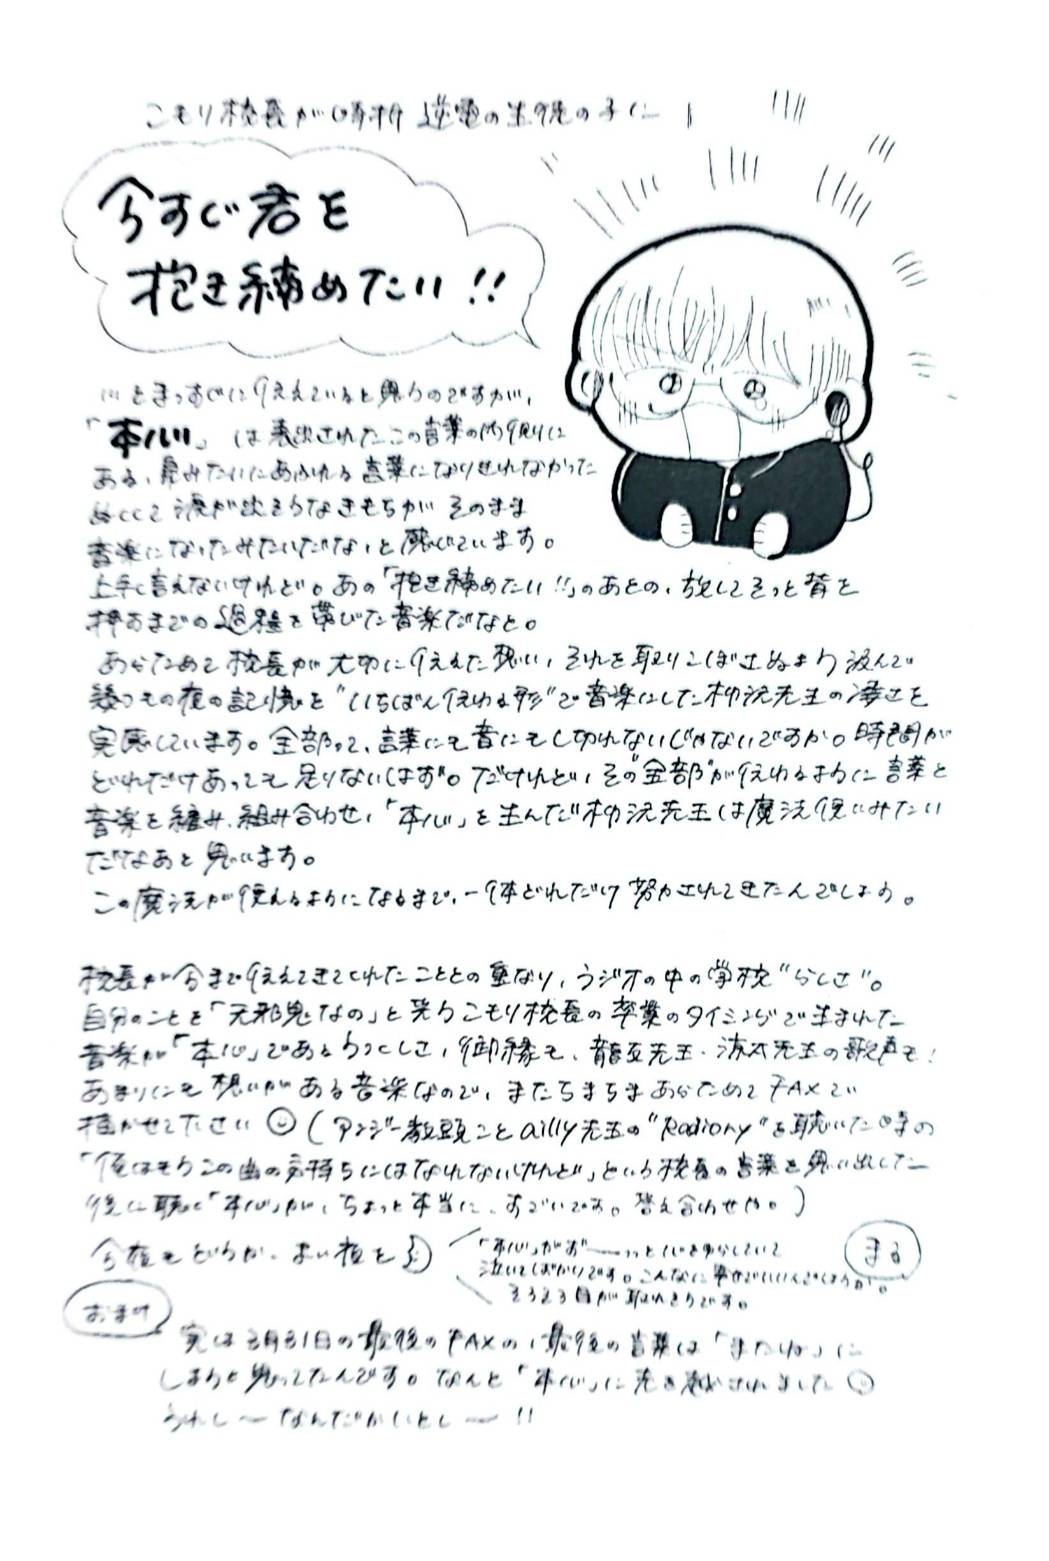 こもり校長が時折 逆電の生徒の子に
今すぐ君を
抱き締めたい!!
… とまっすぐに伝えていると思うのですが、
「本心」は表出されたこの言葉の内側に
ある、昂みたいにあふれる言葉になりきれなかった
涙が出そうなきもちが そのまま
音楽になったみたいだな、と感じています。
上手く言えないけれど。あの「抱き締めたい!!」のあとの、放してそっと背を
押すまでの過程を帯びた音楽だなと。
あらためて校長が大切に伝えた想い、それを取りこぼさぬよう汲んで
幾つもの夜の記憶を“いちばん伝わる形”で音楽にした柳沢先生の凄さを
実感しています。全部って、言葉にも音にもし切れないじゃないですか。時間が
どれだけあっても足りないはず。だけれど、その“全部”が伝わるように言葉と
音楽を編み、組み合わせ、「本心」を生んだ柳沢先生は魔法使いみたい
だなあと思います。
この魔法が使えるようになるまで、一体どれだけ努力されてきたんでしょう。
校長が今まで伝えてきてくれたこととの重なり、ラジオの中の学校“らしさ”。
自分のことを「天邪鬼なの」と笑うこもり校長の卒業のタイミングで生まれた
音楽が「本心」であるうつくしさ、御縁も、龍亞先生・涼太先生の歌声も!
あまりにも想いがある音楽なので、またちまちまあらためてFAXで
描かせてください (アンジー教頭ことailly先生の“Radiory”を聴いた時の
「俺はもうこの曲の気持ちにはなれないけれど」という校長の言葉を思い出した
後に聴く「本心」が、ちょっと本当に、すごいです。答え合わせや。)
今夜もどうか、よい夜を
「本心」がずーーっと心を動かしていて
泣いてばかりです。こんなに幸せでいいんでしょうか。
そろそろ目が取れそうです。
まる
おまけ
実は3月31日の最後のFAXの、最後の言葉は「またね」に
しようと思ってたんです。なんと「本心」に先を越されました
うれし〜なんだかいとし〜!!